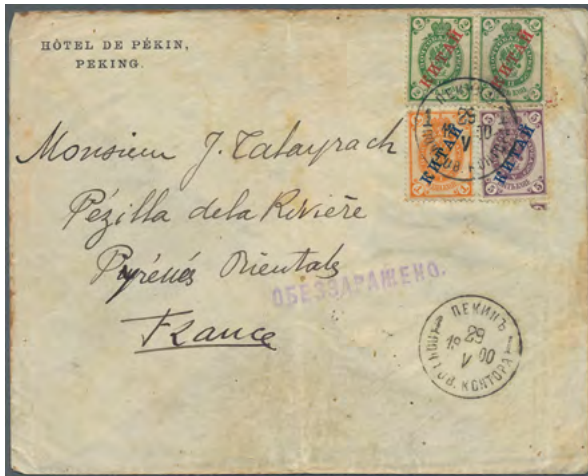 HÔTEL DE PÉKIN,
PEKING.
КИТАЙ КИТАЙ
КИТАЙ КИТАЙ
ПЕКИНЪ
29
V 00
Monsieur J. Talayrach
Pézilla de la Rivière
Pyrénés Orientals
France
ОБЕЗЗАРАЖЕНО.
ПЕКИНЪ
29
19 V 00
ПОЧТОВ. КОНТОРА